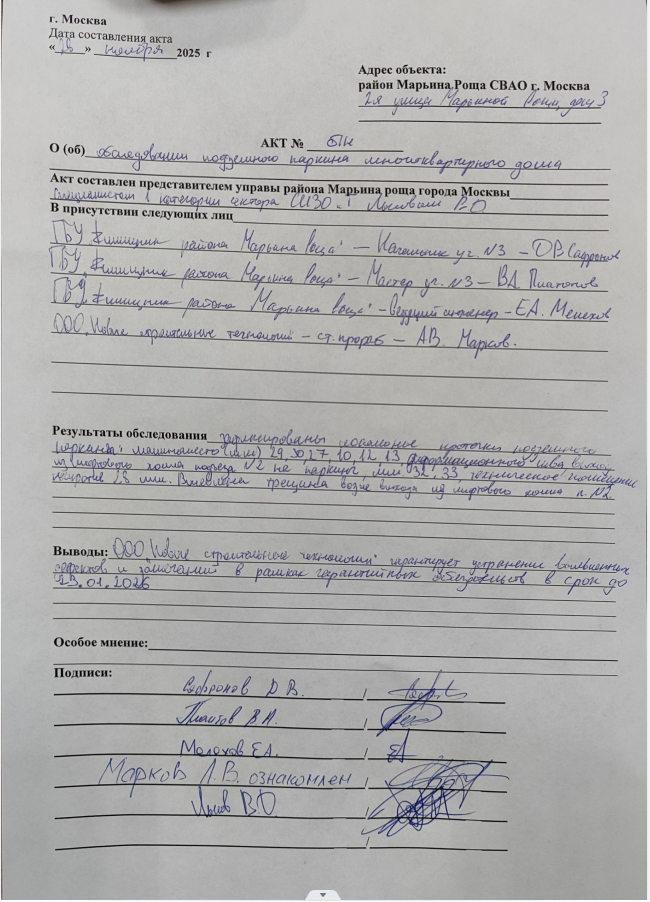 г. Москва
Дата составления акта
« » ноября 2025 г
Адрес объекта:
район Марьина Роща СВАО г. Москва
2я улица Марьиной Рощи, дом 3
АКТ № б/н
О (об) обследовании подземного паркинга многоквартирного дома
Акт составлен представителем управы района Марьина роща города Москвы
специалистом 1 категории сектора
В присутствии следующих лиц
ГБУ "Жилищник района Марьина роща" – Начальник уч. №3 – Д.В. Сафронов
ГБУ "Жилищник района Марьина роща" – Мастер уч. №3 – В.А.
ГБУ "Жилищник района Марьина роща" – Ведущий инженер – Е.А.
ООО "Новые строительные технологии" – ст. прораб – А.В. Марков.
Результаты обследования зафиксированы локальные протечки подземного
паркинга: машиноместо (м/м) 29, 30, 27, 10, 12, 13 шва
из лифтового холла подъезда №2 на паркинг, м/м 32, 33, техническое помещение
напротив 28 м/м. Выявлена трещина возле выхода из лифтового холла п. №2.
Выводы: ООО "Новые строительные технологии" гарантирует устранение выявленных
дефектов и замечаний в рамках гарантийных обязательств в срок до
23.01.2026
Особое мнение:
Подписи:
Сафронов Д.В. /
В.А. /
Е.А. /
Марков А.В. ознакомлен /
В.О. /
/